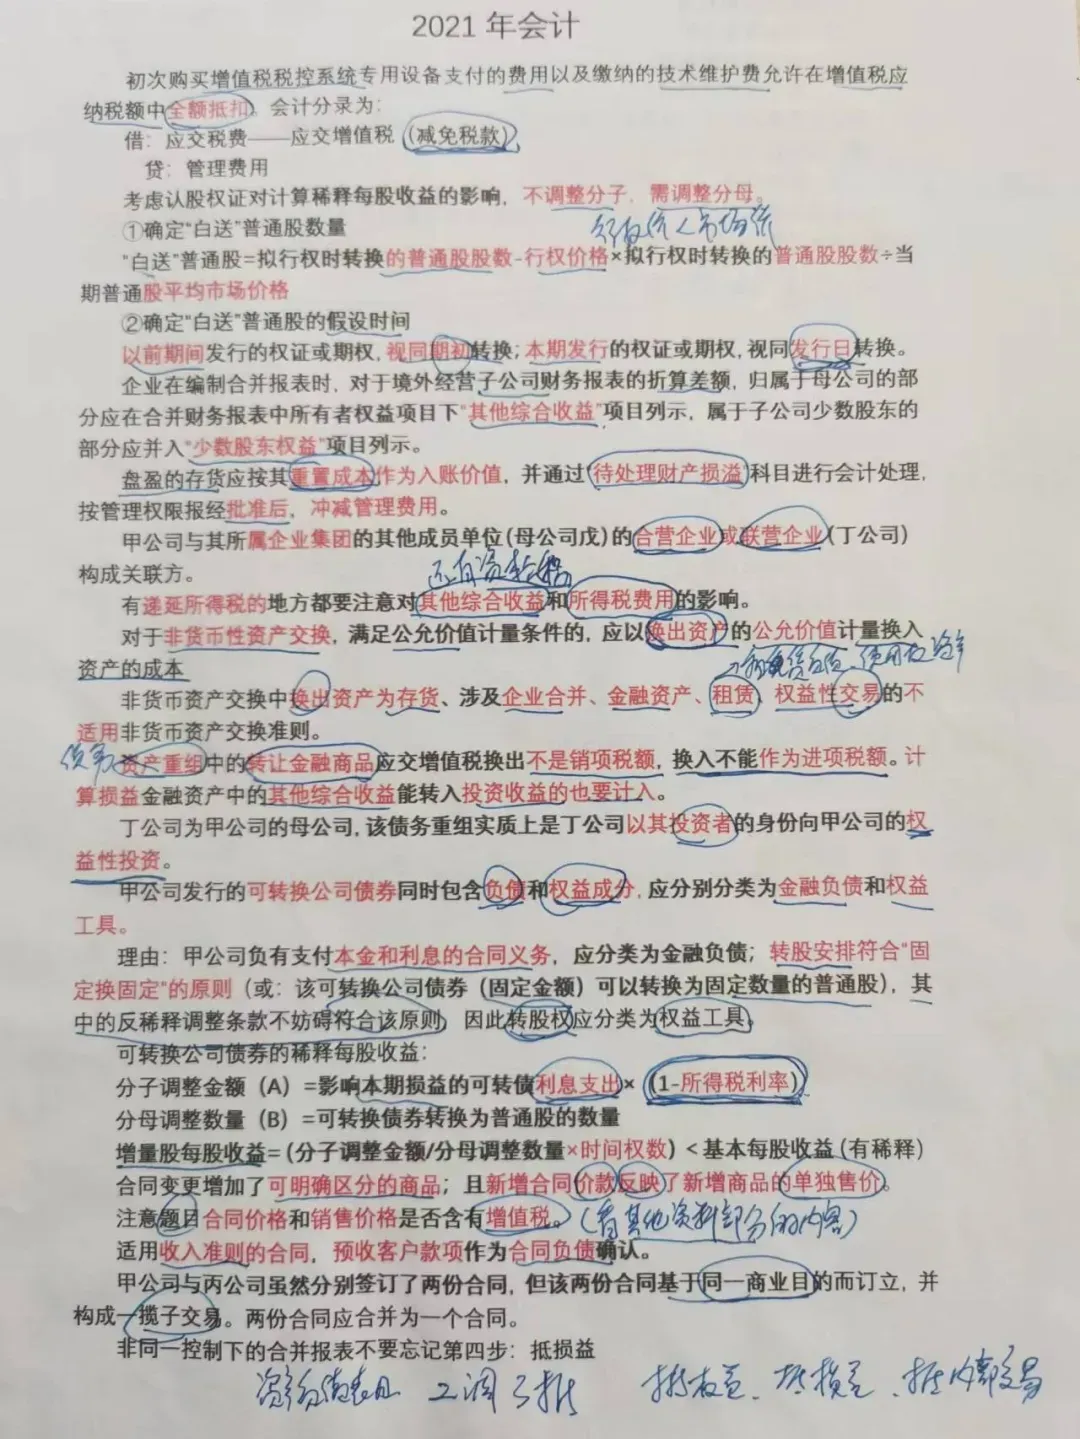 2021 年会计
初次购买增值税税控系统专用设备支付的费用以及缴纳的技术维护费允许在增值税应
纳税额中全额抵扣。会计分录为：
借：应交税费——应交增值税（减免税款）
贷：管理费用
考虑认股权证对计算稀释每股收益的影响，不调整分子，需调整分母。
①确定“白送”普通股数量
“白送”普通股=拟行权时转换的普通股股数-行权价格×拟行权时转换的普通股股数÷当
期普通股平均市场价格
②确定“白送”普通股的假设时间
以前期间发行的权证或期权，视同期初转换；本期发行的权证或期权，视同发行日转换。
企业在编制合并报表时，对于境外经营子公司财务报表的折算差额，归属于母公司的部
分应在合并财务报表中所有者权益项目下“其他综合收益”项目列示，属于子公司少数股东的
部分应并入“少数股东权益”项目列示。
盘盈的存货应按其重置成本作为入账价值，并通过“待处理财产损溢”科目进行会计处理，
按管理权限报经批准后，冲减管理费用。
甲公司与其所属企业集团的其他成员单位(母公司戊)的合营企业或联营企业(丁公司)
构成关联方。
有递延所得税的地方都要注意对其他综合收益和所得税费用的影响。
对于非货币性资产交换，满足公允价值计量条件的，应以换出资产的公允价值计量换入
资产的成本
非货币资产交换中换出资产为存货、涉及企业合并、金融资产、租赁、权益性交易的不
适用非货币资产交换准则。
债务 资产重组中的转让金融商品应交增值税换出不是销项税额，换入不能作为进项税额。计
算损益金融资产中的其他综合收益能转入投资收益的也要计入。
丁公司为甲公司的母公司,该债务重组实质上是丁公司以其投资者的身份向甲公司的权
益性投资。
甲公司发行的可转换公司债券同时包含负债和权益成分,应分别分类为金融负债和权益
工具。
理由：甲公司负有支付本金和利息的合同义务，应分类为金融负债；转股安排符合“固
定换固定”的原则（或：该可转换公司债券（固定金额）可以转换为固定数量的普通股），其
中的反稀释调整条款不妨碍符合该原则，因此转股权应分类为权益工具。
可转换公司债券的稀释每股收益：
分子调整金额（A）=影响本期损益的可转债利息支出×（1-所得税利率）
分母调整数量（B）=可转换债券转换为普通股的数量
增量股每股收益=(分子调整金额/分母调整数量×时间权数)＜基本每股收益(有稀释)
合同变更增加了可明确区分的商品；且新增合同价款反映了新增商品的单独售价。
注意题目合同价格和销售价格是否含有增值税。（看其他资料部分的内容）
适用收入准则的合同，预收客户款项作为合同负债确认。
甲公司与丙公司虽然分别签订了两份合同，但该两份合同基于同一商业目的而订立，并
构成一揽子交易。两份合同应合并为一个合同。
非同一控制下的合并报表不要忘记第四步：抵损益